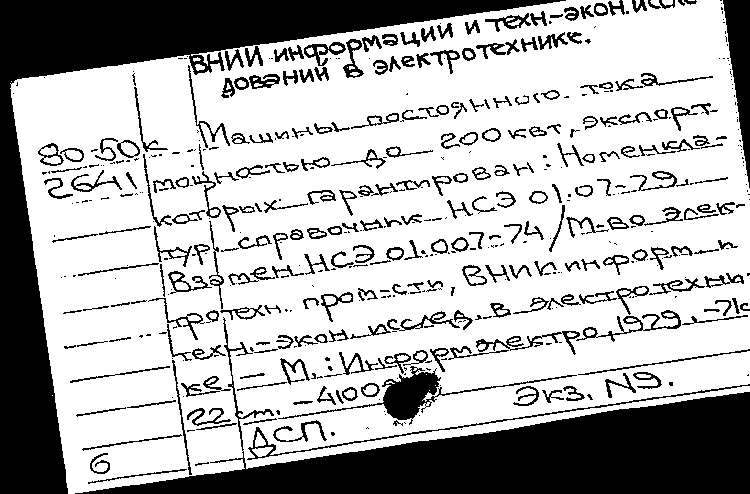 ВНИИ информации и техн.-экон. иссле
дований в электротехнике.
80-50к Машины постоянного тока
2641 мощностью до 200 квт, экспорт
которых гарантирован: Номенкла-
тур. справочник НСЭ 01.07-79.
Взамен НСЭ 01.007-74/М-во элек-
тротехн. пром-сти, ВНИИ информ. и
техн.-экон. исслед. в электротехни-
ке. — М.: Информэлектро, 1979. -
22 ст. - 4100
ДСП. Экз. N9.
6